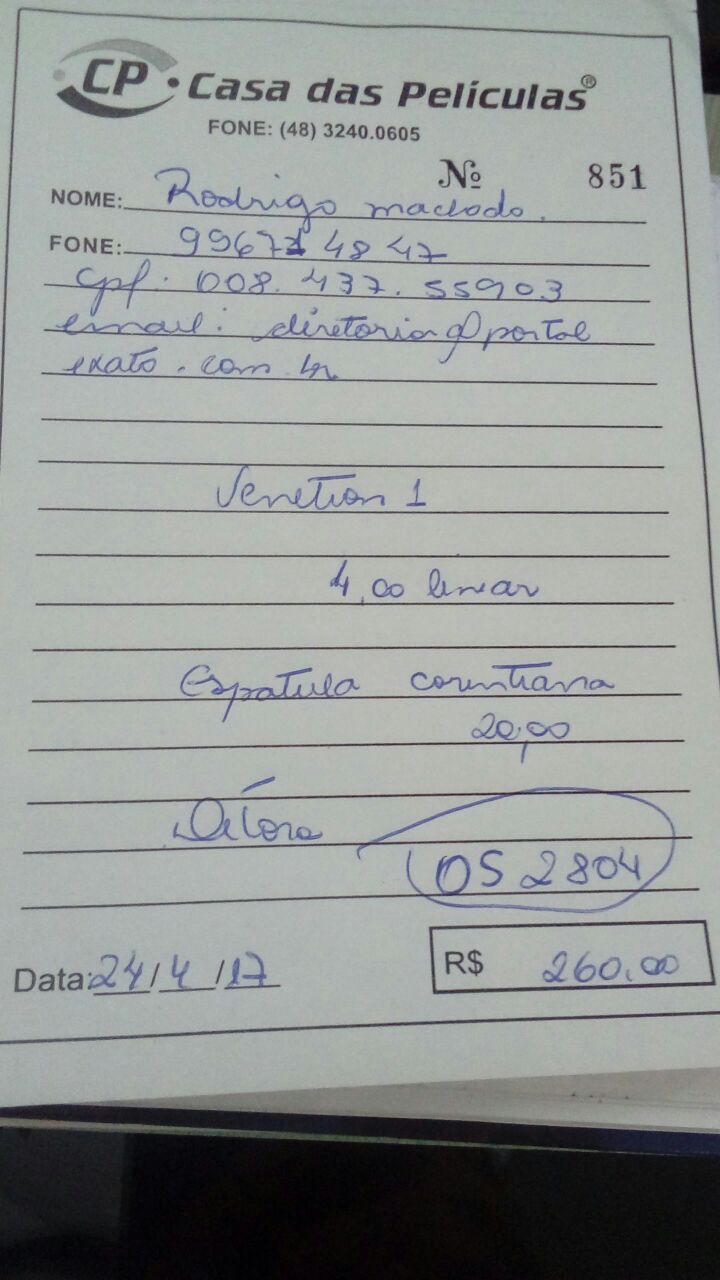 CP • Casa das Películas®
FONE: (48) 3240.0605
Nº 851
NOME: Rodrigo macbodo.
FONE: 99671 48 47
cpf. 008. 437. 55903
email: diretoria@portal
exato.com.br
Venetian 1
4,00 linear
Espatula corintiana
20,00
Débora
OS 2804
Data: 24/4/17
R$ 260.00